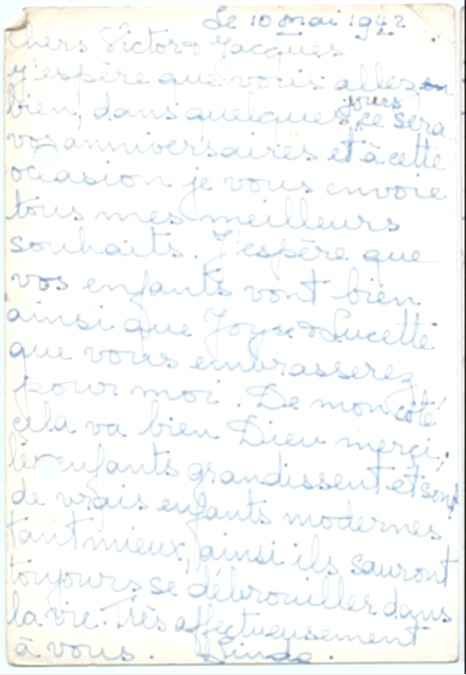 Le 10 mai 1942
Chers Victor & Jacques
J'espère que vous allez
bien, dans quelques jours ce sera
vos anniversaires et à cette
occasion je vous envoie
tous mes meilleurs
souhaits. J'espère que
vos enfants vont bien
ainsi que Joyce & Lucette
que vous embrasserez
pour moi. De mon côté
cela va bien Dieu merci,
les enfants grandissent et sont
de vrais enfants modernes
tant mieux, ainsi ils sauront
toujours se débrouiller dans
la vie. Très affectueusement
à vous. Linda.